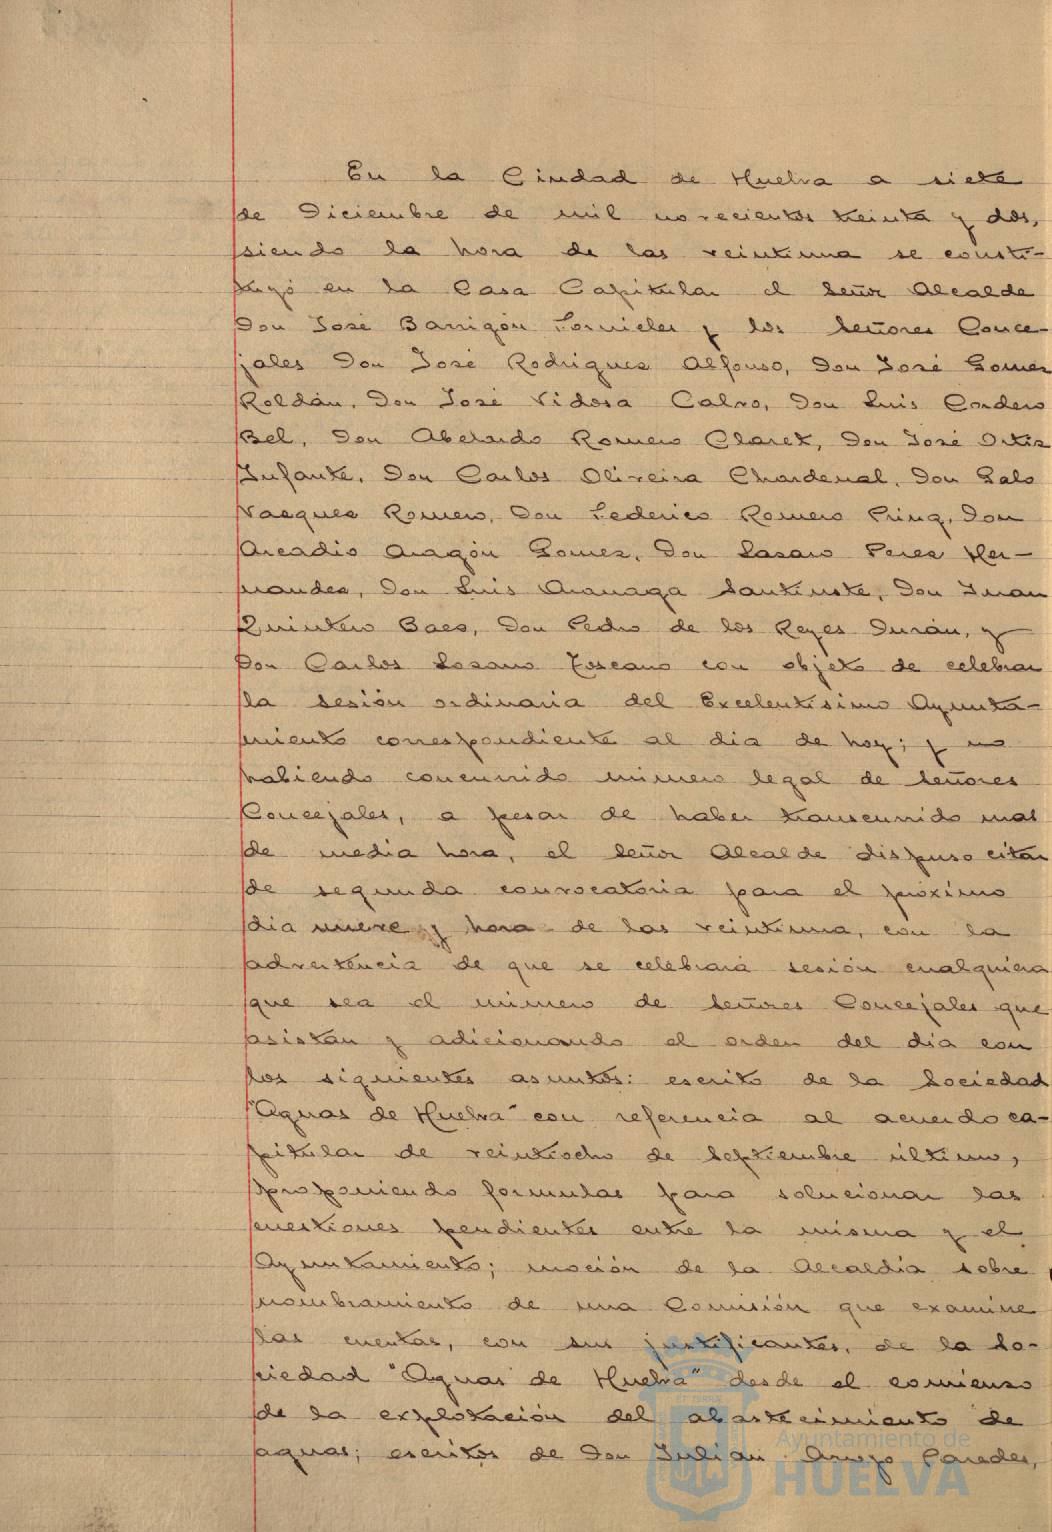 En la Ciudad de Huelva a siete
de Diciembre de mil novecientos treinta y dos,
siendo la hora de las veintiuna se consti-
tuyó en la Casa Capitular el Señor Alcalde
Don José Barrigón Fornieles y los Señores Conce-
jales Don José Rodriguez Alfonso, Don José Gomez
Roldán, Don José Vidosa Calvo, Don Luis Cordero
Bel, Don Abelardo Romero Claret, Don José Ortiz
Infante, Don Carlos Oliveira Chardenal, Don Galo
Vazquez Romero, Don Federico Romero Pring, Don
Arcadio Aragón Gomez, Don Lazaro Perez Her-
nandez, Don Luis Aranaga Santiuste, Don Juan
Quintero Baez, Don Pedro de los Reyes Durán, y
Don Carlos Lozano Toscano con objeto de celebrar
la sesión ordinaria del Excelentísimo Ayunta-
miento correspondiente al dia de hoy; y no
habiendo concurrido número legal de Señores
Concejales, a pesar de haber transcurrido mas
de media hora, el Señor Alcalde dispuso citar
de segunda convocatoria para el próximo
dia nueve y hora de las veintiuna, con la
advertencia de que se celebrará sesión cualquiera
que sea el número de Señores Concejales que
asistan y adicionando el orden del dia con
los siguientes asuntos: escrito de la Sociedad
"Aguas de Huelva" con referencia al acuerdo ca-
pitular de veintiocho de Septiembre último,
proponiendo formulas para solucionar las
cuestiones pendientes entre la misma y el
Ayuntamiento; moción de la Alcaldía sobre
nombramiento de una Comisión que examine
las cuentas, con sus justificantes, de la So-
ciedad "Aguas de Huelva" desde el comienzo
de la explotación del abastecimiento de
aguas; escritos de Don Julián Arroyo Paredes,
Ayuntamiento de
HUELVA